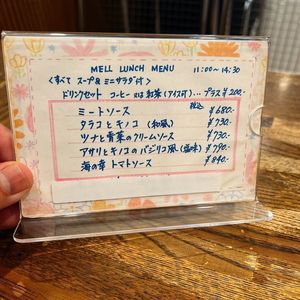 MELL LUNCH MENU 11:00〜14:30
〈すべて スープ& ミニサラダ付〉
ドリンクセット コーヒー 又は 紅茶 (アイス可)… プラス ¥200.-
税込
ミートソース ¥680.-
タラコとキノコ (和風) ¥730.-
ツナと青菜のクリームソース ¥730.-
アサリとキノコのバジリコ風 (塩味) ¥790.-
海の幸 トマトソース ¥840.-